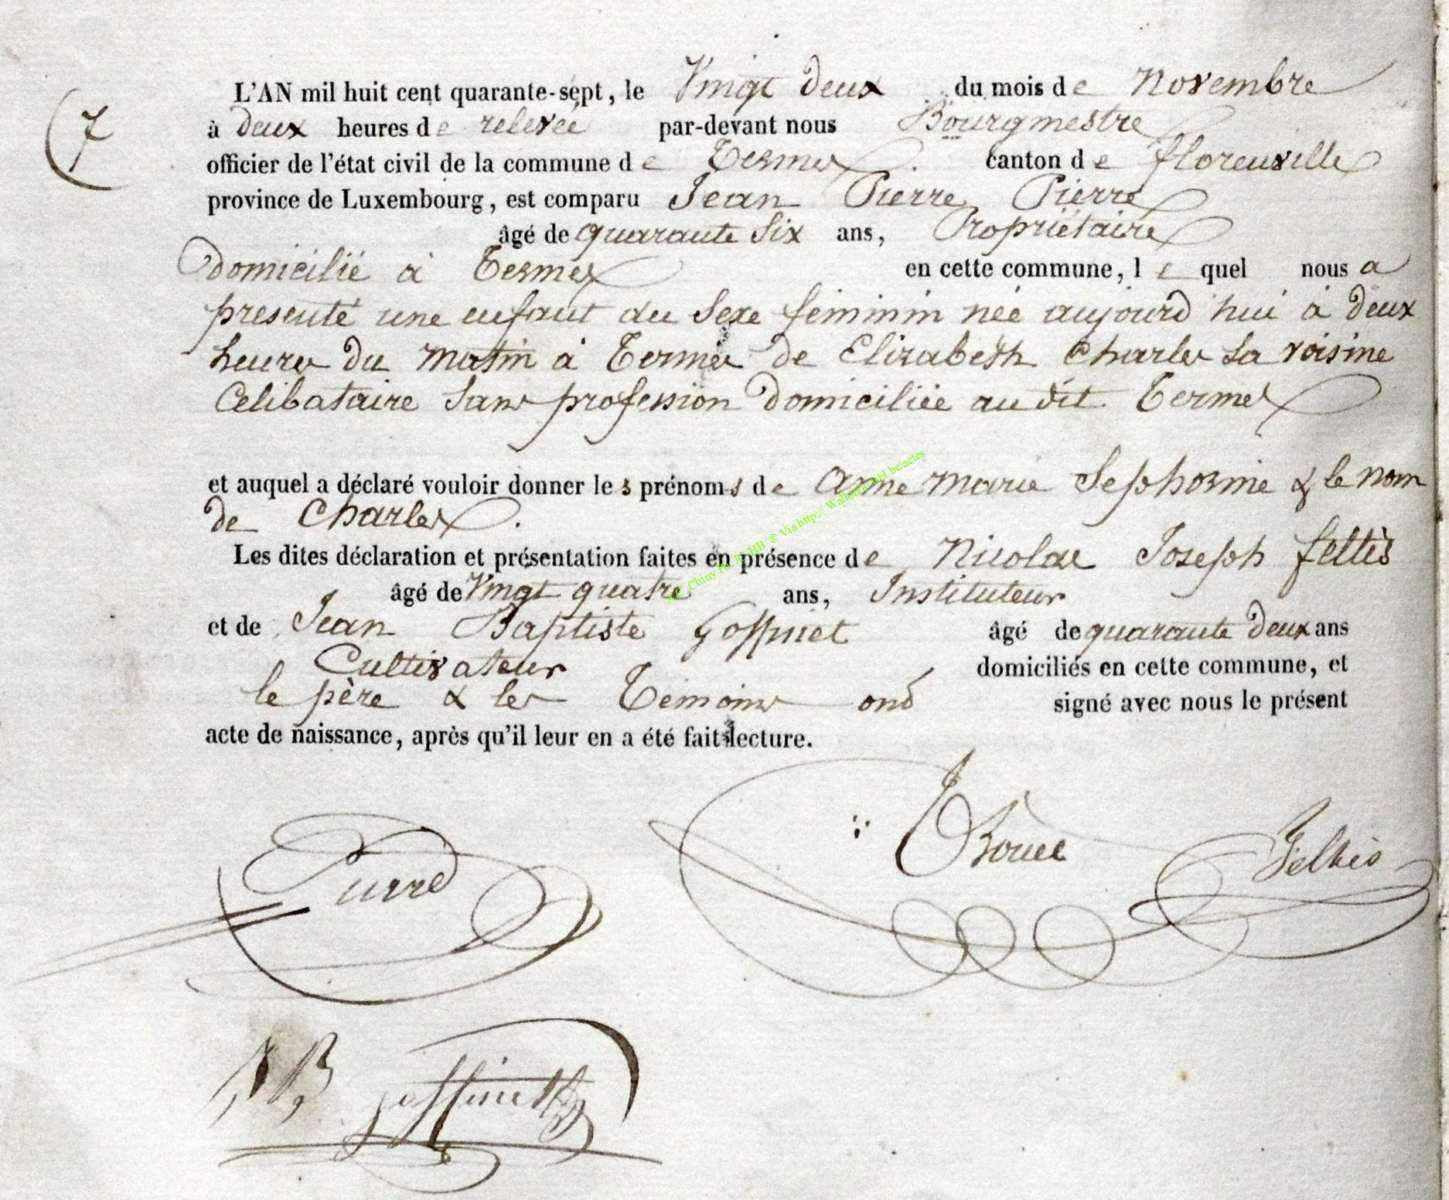 7
L'AN mil huit cent quarante-sept, le Vingt deux du mois de Novembre
à deux heures de relevée par-devant nous Bourgmestre
officier de l'état civil de la commune de Termes canton de florenville
province de Luxembourg, est comparu Jean Pierre Pierre
âgé de quarante Six ans, Propriétaire
domicilié à Termes en cette commune, le quel nous a
présenté une enfant du Sexe féminin née aujourd'hui à deux
heures du matin à Termes de Elizabeth Charles sa voisine
Célibataire Sans profession domiciliée au dit Termes
et auquel a déclaré vouloir donner les prénoms de Anne Marie Sephorine & le nom
de Charles.
Les dites déclaration et présentation faites en présence de Nicolas Joseph feltès
âgé de Vingt quatre ans, Instituteur
et de Jean Baptiste Goffinet âgé de quarante deux ans
Cultivateur domiciliés en cette commune, et
le père & les Témoins ont signé avec nous le présent
acte de naissance, après qu'il leur en a été fait lecture.
Pierre
Feltès
J, B, Goffinet